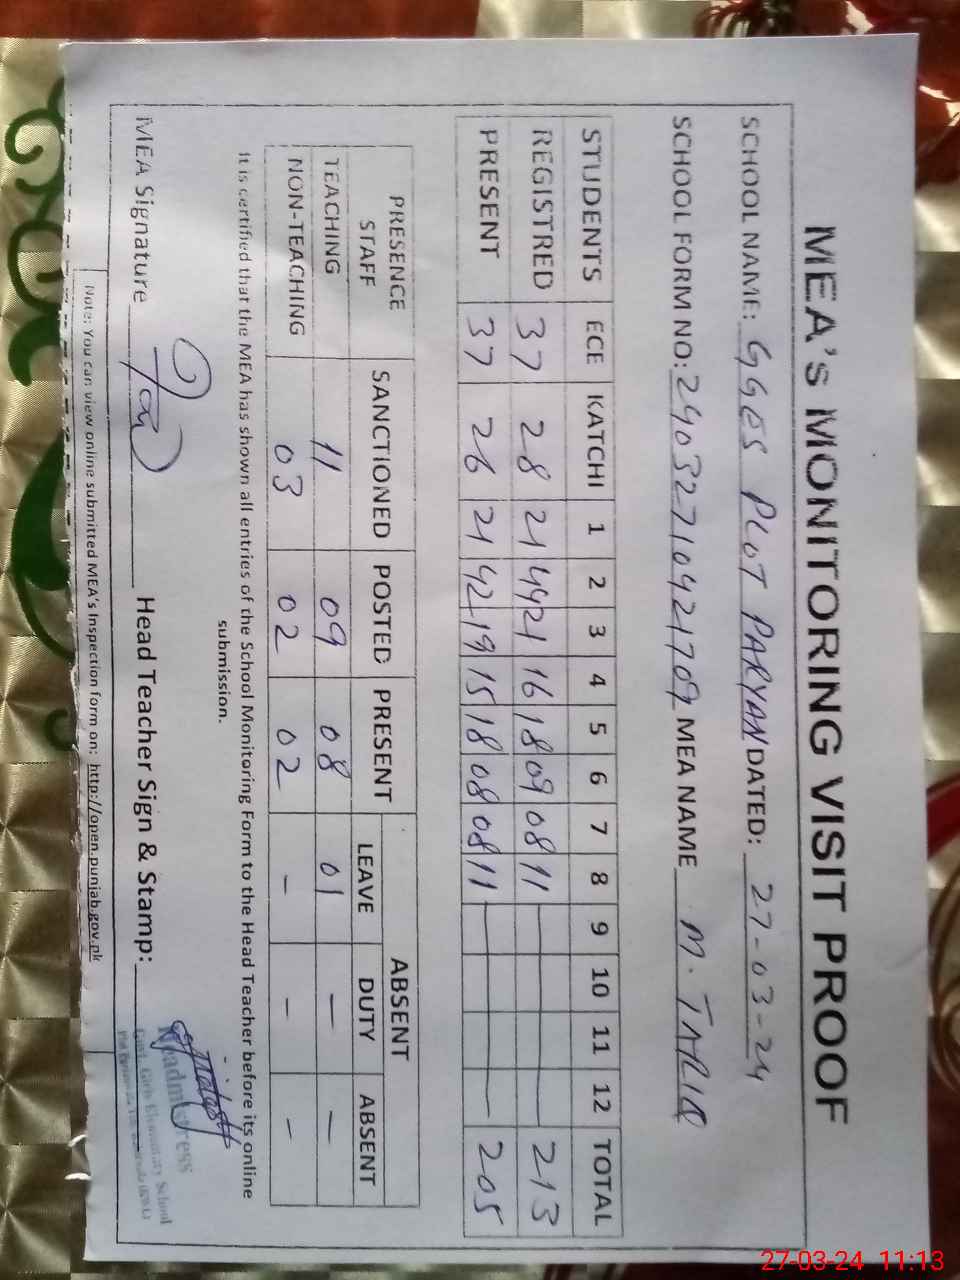 MEA's MONITORING VISIT PROOF
SCHOOL NAME: GGES PLOT PARYAN DATED: 27-03-24
SCHOOL FORM NO: 24032710421709 MEA NAME M. TARIQ
STUDENTS ECE KATCHI 1 2 3 4 5 6 7 8 9 10 11 12 TOTAL
REGISTRED 37 28 21 44 21 16 18 09 08 11 213
PRESENT 37 26 21 42 19 15 18 08 08 11 205
PRESENCE STAFF SANCTIONED POSTED PRESENT ABSENT
LEAVE DUTY ABSENT
TEACHING 11 09 08 01 - -
NON-TEACHING 03 02 02 - - -
It is certified that the MEA has shown all entries of the School Monitoring Form to the Head Teacher before its online
submission.
MEA Signature Head Teacher Sign & Stamp:
Headmistress
Govt. Girls Elementary School
Note: You can view online submitted MEA's Inspection form on: http://open.punjab.gov.pk
27-03-24 11:13